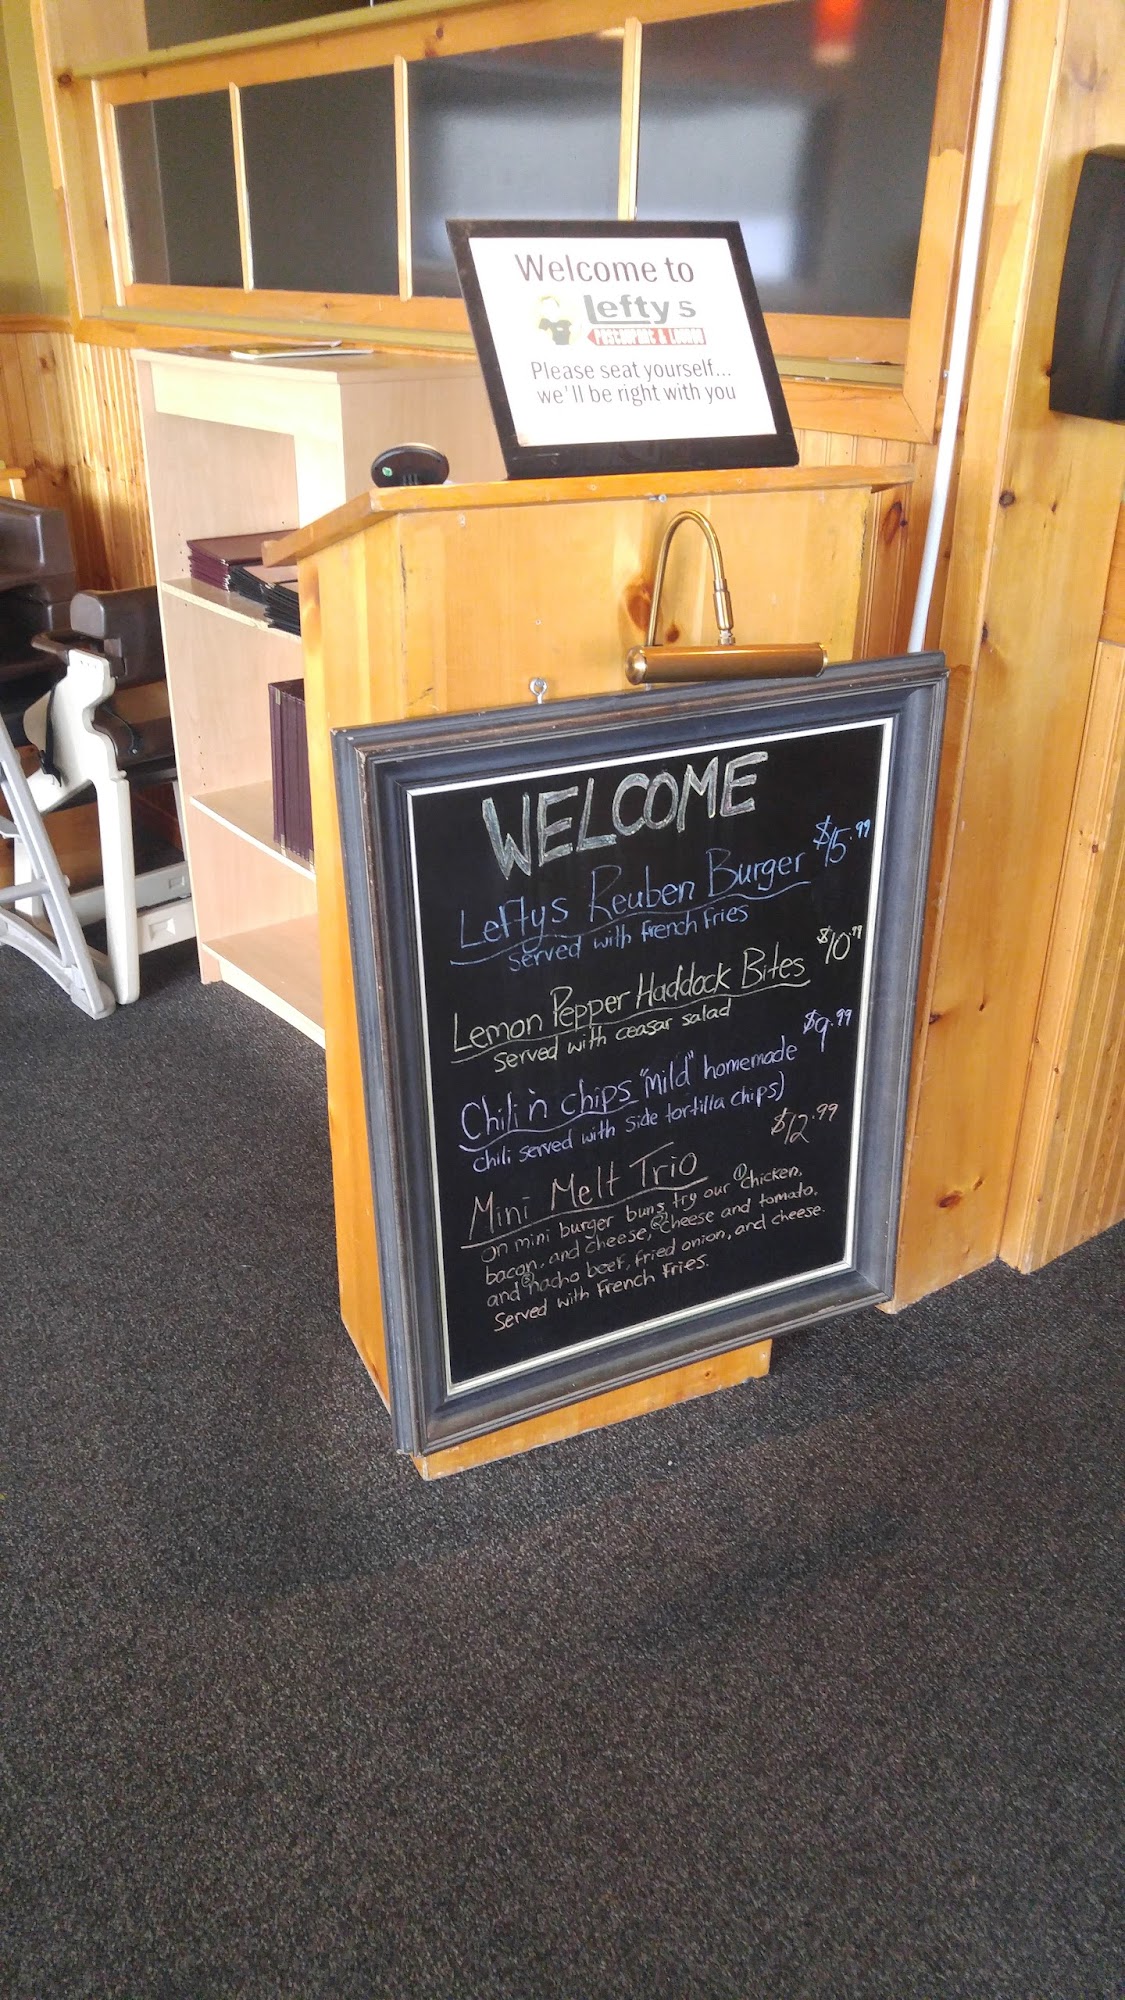 Welcome to
Leftys
RESTAURANT & LOUNGE
Please seat yourself...
we'll be right with you
WELCOME
Leftys Reuben Burger $15.99
served with French Fries
Lemon Pepper Haddock Bites $10.99
served with ceasar salad
Chili 'n chips "mild" homemade $9.99
chili served with side tortilla chips)
Mini Melt Trio $12.99
on mini burger buns, try our ① chicken,
bacon, and cheese, ② cheese and tomato,
and ③ nacho beef, fried onion, and cheese.
Served with French Fries.